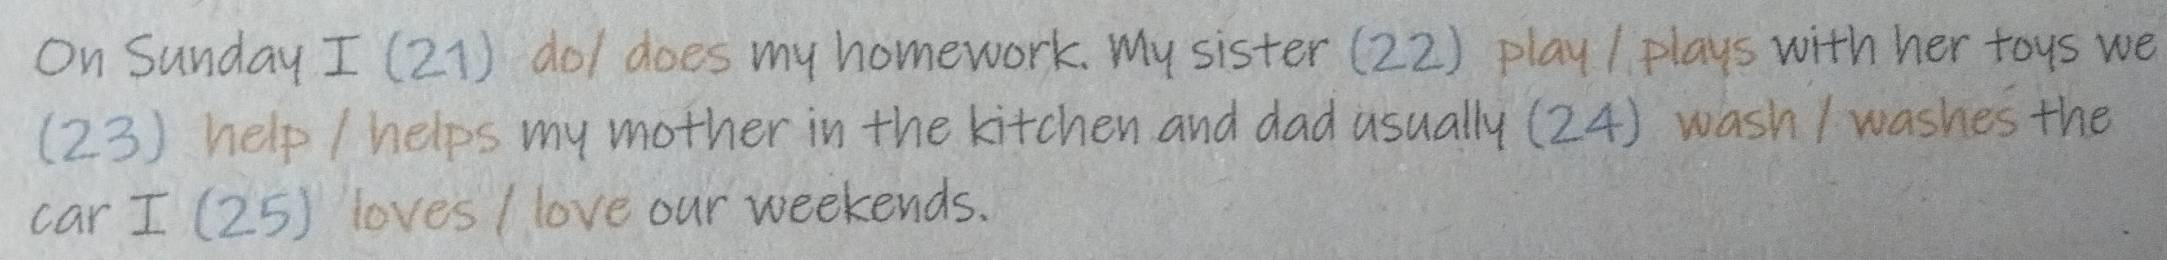 On Sunday I (21) do/ does my homework. My sister (22) play / plays with her toys we
(23) help / helps my mother in the kitchen and dad usually (24) wash / washes the
car I (25) loves / love our weekends.